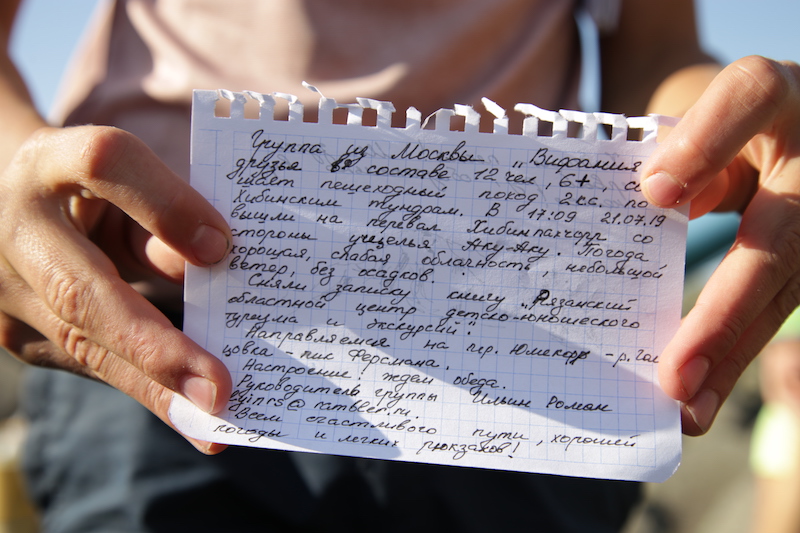 Группа из Москвы „Вифания
друзья в составе 12 чел, 6+, со
вшает пешеходный поход 2 к.с. по
Хибинским тундрам. В 17:09 21.07.19
вышли на перевал Хибинпахчорр со
стороны ущелья Аку-Аку. Погода
хорошая, слабая облачность, небольшой
ветер, без осадков.
Сняли записку книгу „Рязанский
областной центр детско-юношеского
туризма и экскурсий".
Направляемся на пер. Юмекор - р. Гол
цовка - пик Ферсмана.
Настроение: ждем обеда.
Руководитель группы Ильин Роман
@rambler.ru.
Всем счастливого пути, хорошей
погоды и легких рюкзаков!